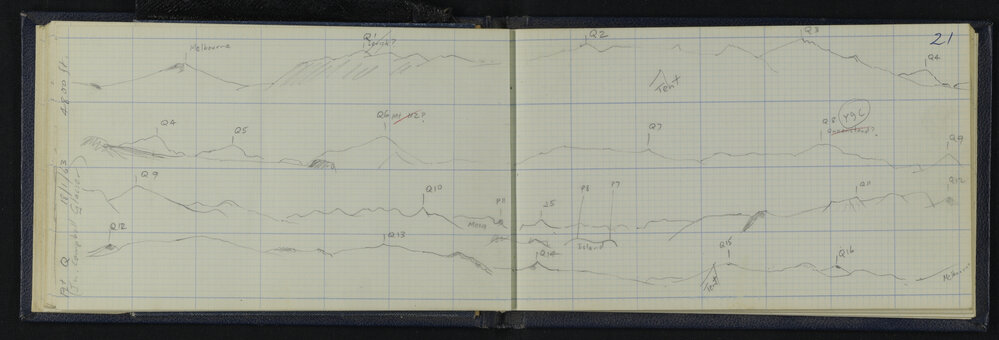 21
At Q 18/1/63 4800 ft.
(In Campbell Glacier)
Melbourne Q1 Q2 Q3 Q4
Tent
Q4 Q5 Q6 Q7 Q8 YGC Q9
Q9 Q10 P11 Q5 P8 P7 Q11 Q12
Mesa Island
Q12 Q13 Q14 Q15 Q16
Tent Melbourne